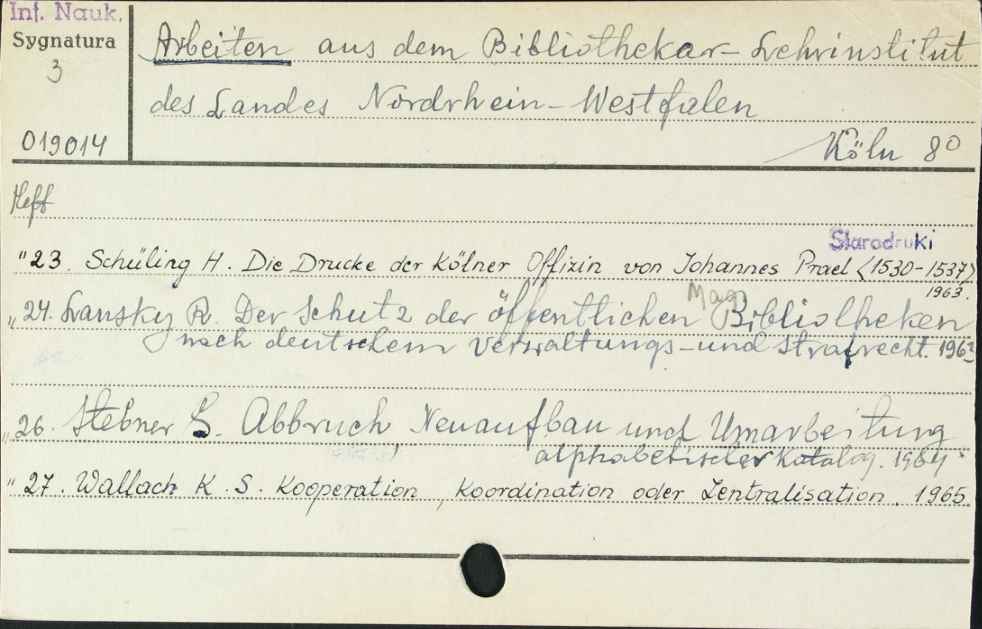 Inf. Nauk.
Sygnatura
3
019014
Arbeiten aus dem Bibliothekar-Lehrinstitut
des Landes Nordrhein-Westfalen
Köln 8°
Heft
Starodruki
"23. Schüling H. Die Drucke der Kölner Offizin von Johannes Prael (1530-1537)
1963.
Mag.
"24. Lansky R. Der Schutz der öffentlichen Bibliotheken
nach deutschem Verwaltungs-und Strafrecht.
"26. Stebner G. Abbruch, Neuaufbau und Umarbeitung
alphabetischer Katalog. 1964
"27. Wallach K. S. Kooperation, Koordination oder Zentralisation. 1965